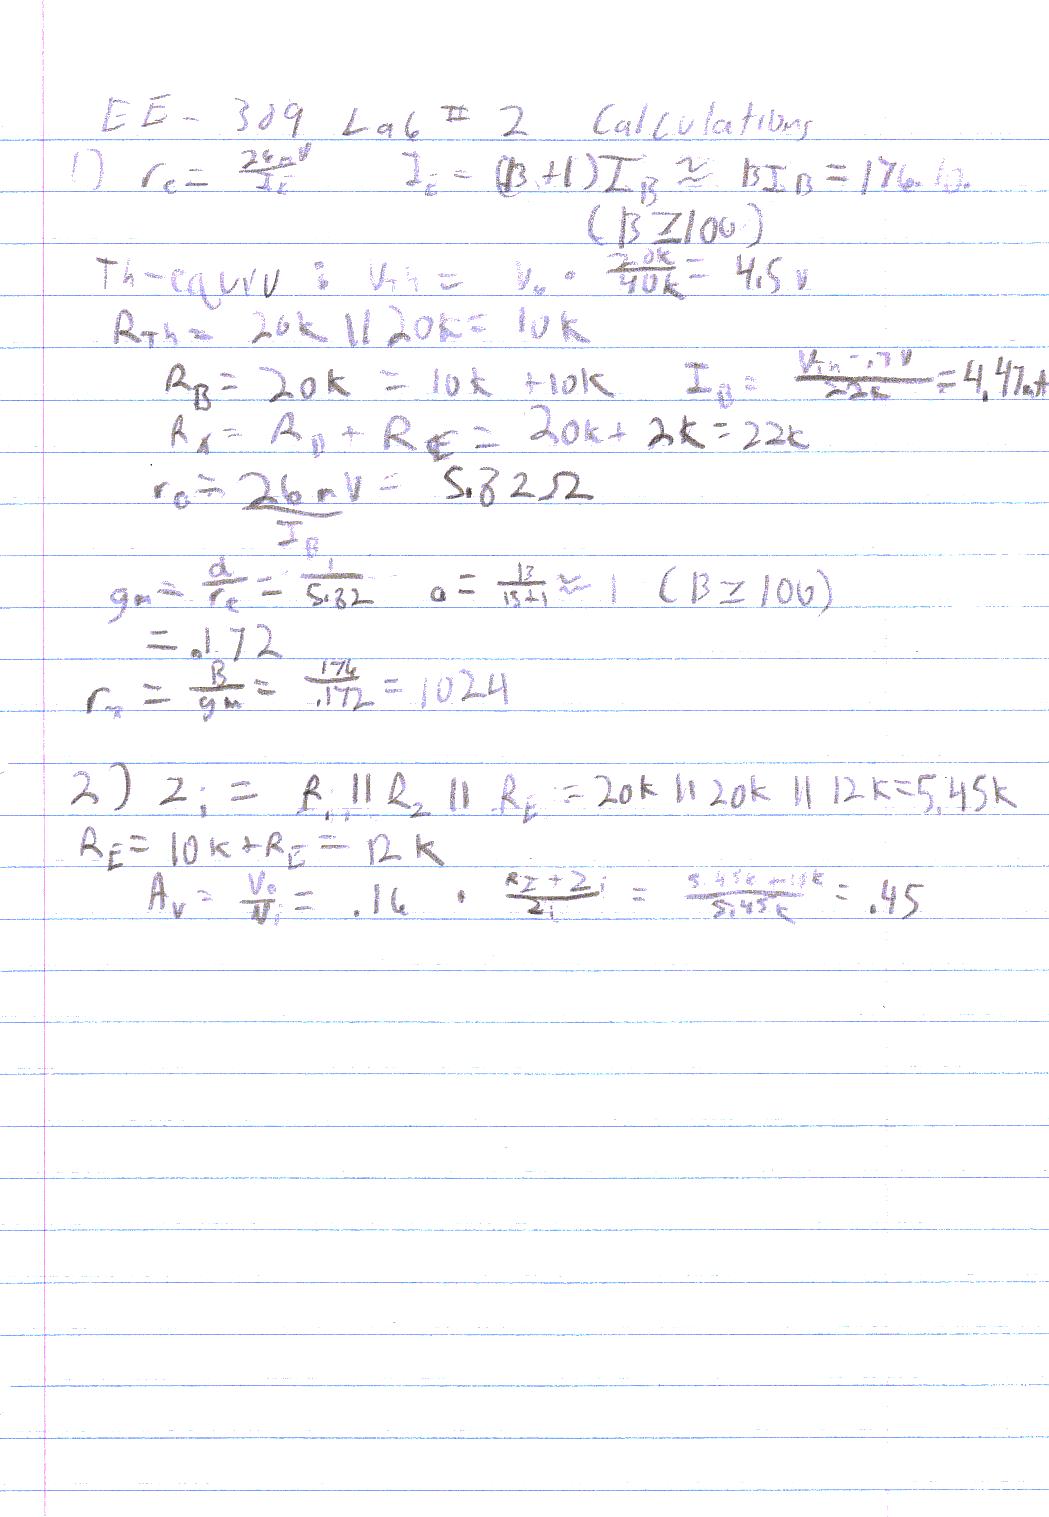 EE-309 Lab # 2 Calculations
1) re = 26mV/IE IE = (B+1)IB ≅ BIB = 176·IB
(B ≥ 100)
Th-equiv: VTh = · 20k/40k = 4.5 v
RTh = 20k || 20k = 10k
RB = 20k = 10k + 10k IB = VTh - .7V/22k = 4.47mA
Rx = RB + RE = 20k + 2k = 22k
re = 26mV/IB = 5.82Ω
gm = a/re = 1/5.82 a = B/B+1 ≈ 1 (B ≥ 100)
= .172
rπ = B/gm = 176/.172 = 1024
2) Zi = R1 || R2 || RE = 20k || 20k || 12k = 5.45k
RE = 10k + RE = 12k
Av = Vo/Vi = .16 · RI + Zi/Zi = 5.45k + 10k/5.45k = .45